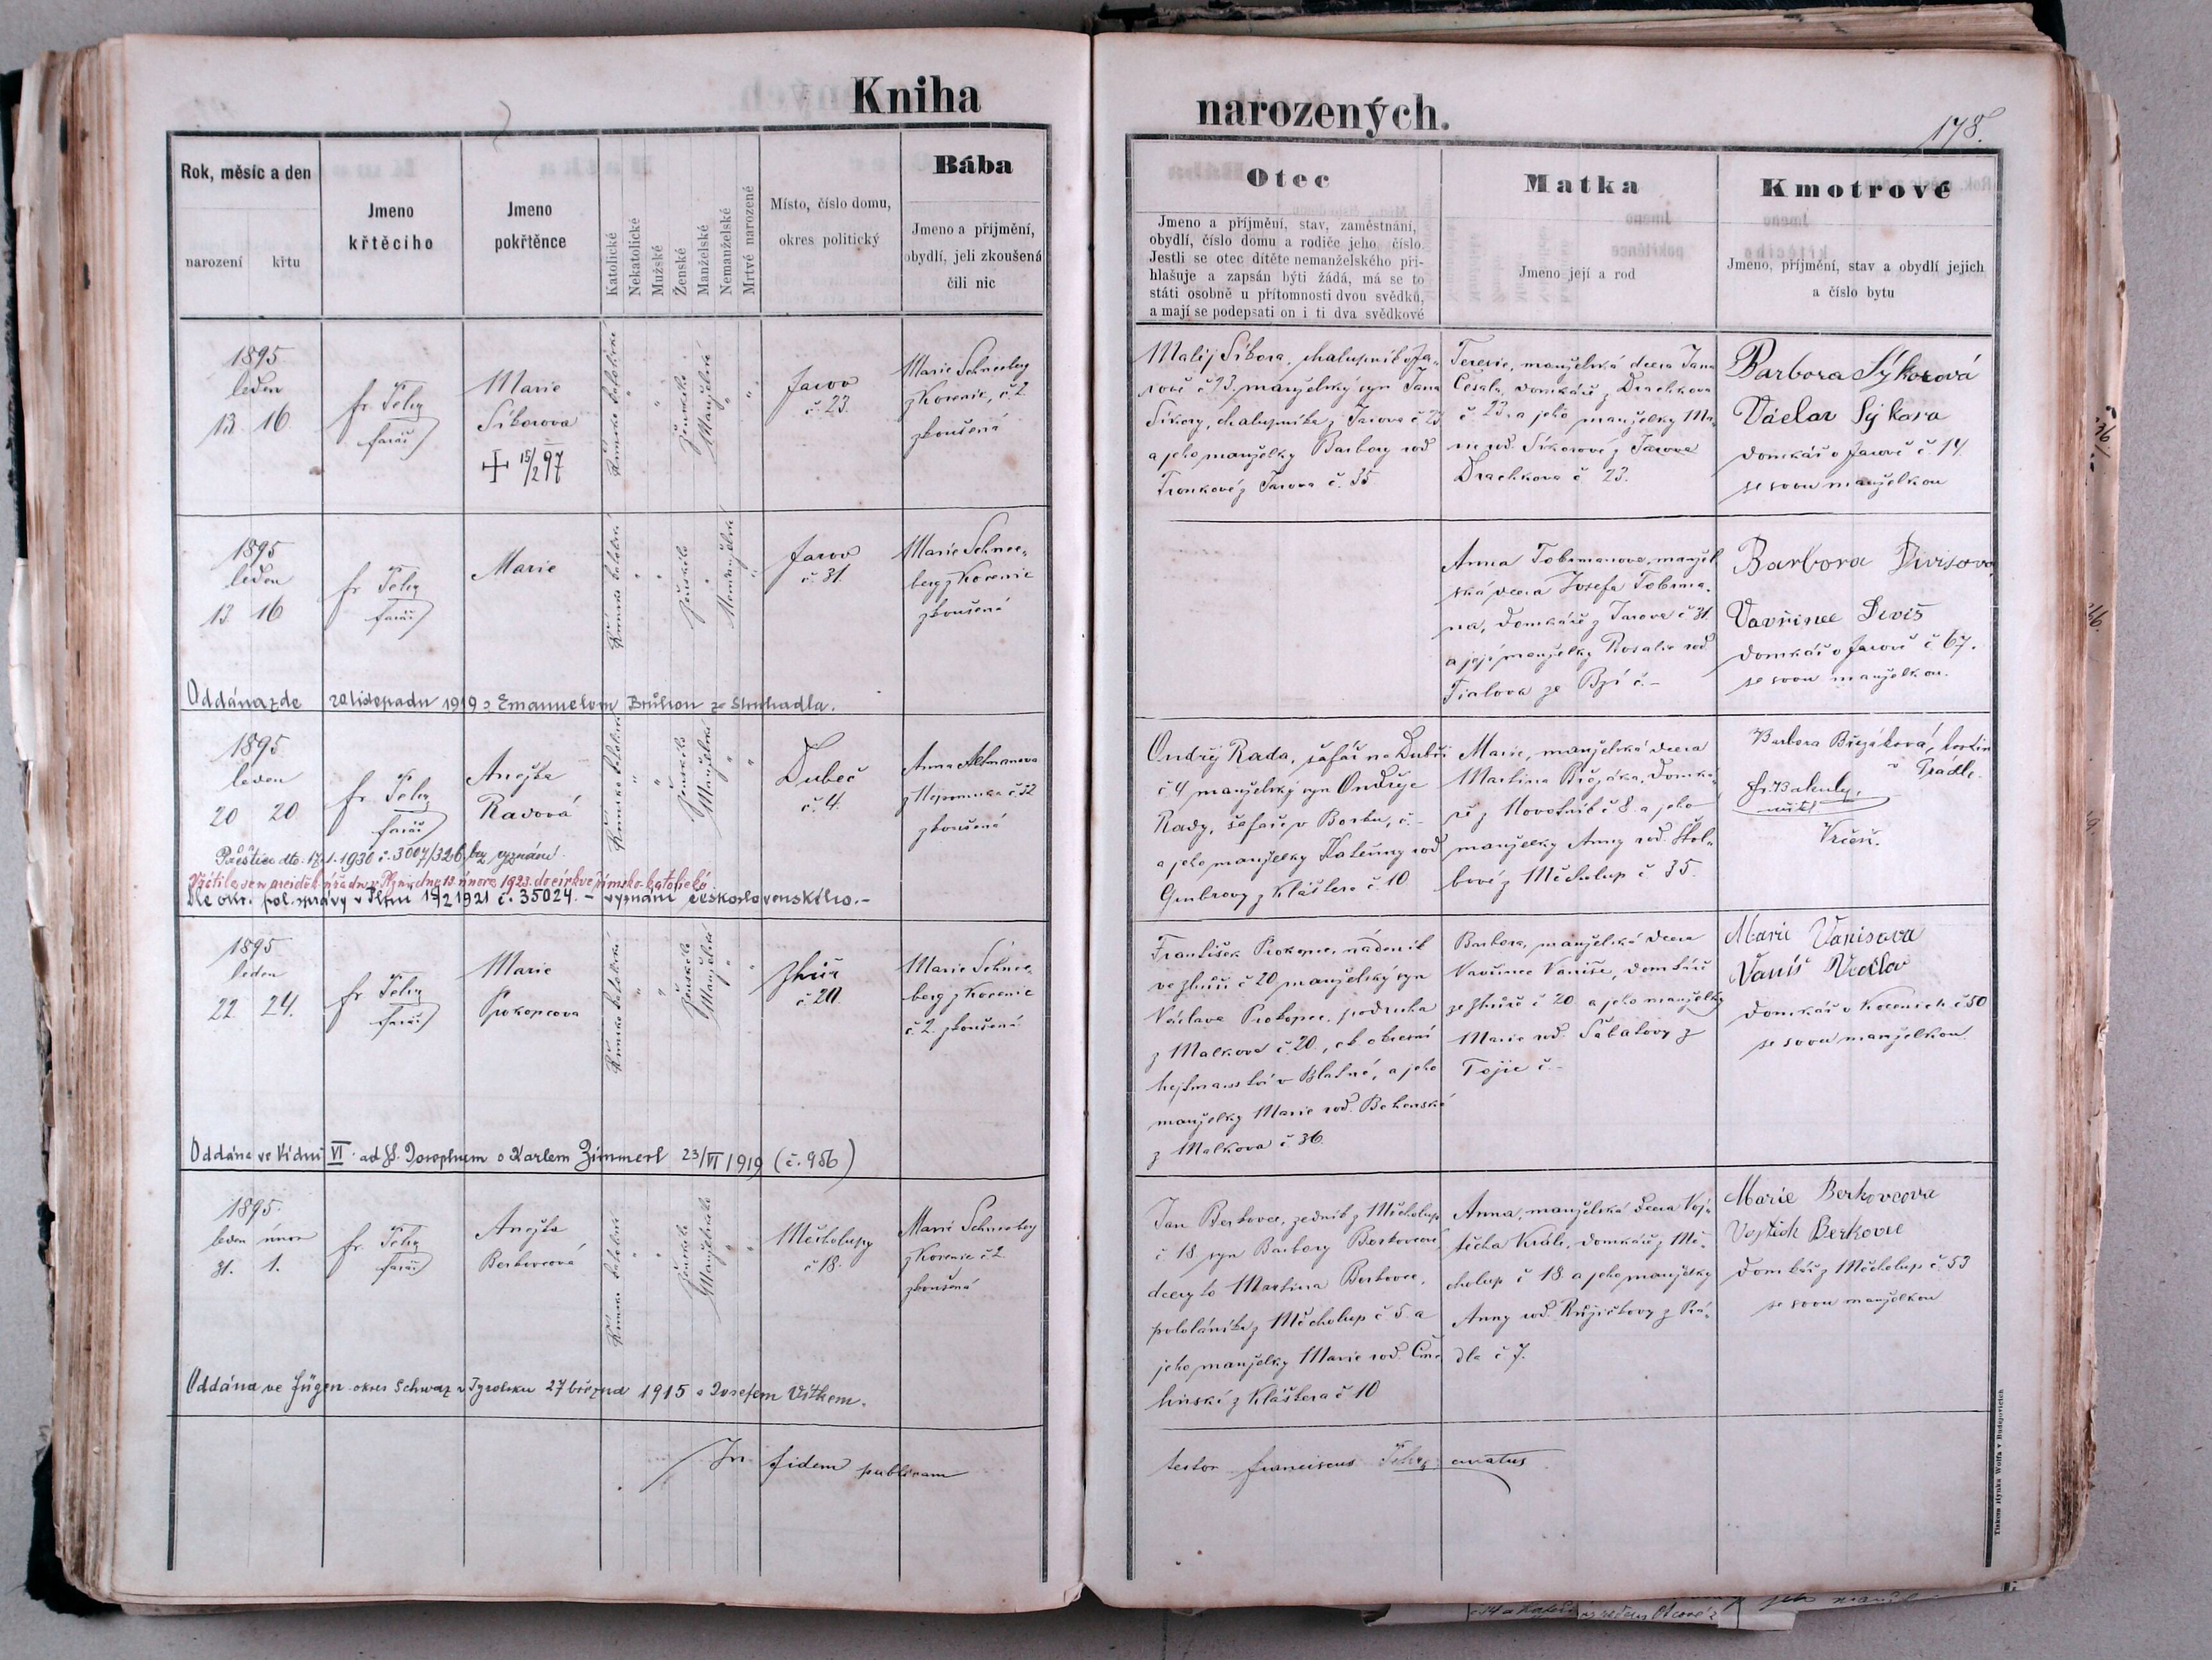 Kniha
narozených.
178.
Rok, měsíc a den
narození
křtu
Jmeno
křtěcího
Jmeno
pokřtěnce
Katolické
Nekatolické
Mužské
Ženské
Manželské
Nemanželské
Mrtvé narozené
Místo, číslo domu,
okres politický
Bába
Jmeno a příjmění,
obydlí, jeli zkoušená
čili nic
Otec
Jmeno a příjmění, stav, zaměstnání,
obydlí, číslo domu a rodiče jeho, číslo.
Jestli se otec dítěte nemanželského při-
hlašuje a zapsán býti žádá, má se to
státi osobně u přítomnosti dvou svědků,
a mají se podepsati on i ti dva svědkové
Matka
Jmeno její a rod
Kmotrové
Jmeno, příjmění, stav a obydlí jejich
a číslo bytu
1895
leden
13 16
farář
Marie
Síkorova
15/2 97
Římsko katolické
Ženské
Manželské
Jarov
č. 23.
Marie Schneeberg
z Kocenic, č. 2
zkoušená
Matěj Síkora, chalupník v Ja-
rově č 23, manželský syn Jana
Síkory, chalupníka z Jarova č 23
a jeho manželky Barbory rod
z Jarova č. 35
Terezie, manželská dcera Jana
domkáře z Drachkova
č. 23. a jeho manželky Ma-
rie rod. Síkorové z Jarova
Drachkova č. 23.
Barbora Sýkorová
Václav Sýkora
domkář v Jarově č. 14.
se svou manželkou
1895
leden
13 16
farář
Marie
Římsko katolické
Ženské
Nemanželské
Jarov
č. 31.
Marie Schnee-
berg z Kocenic
zkoušená
Anna Tobrmanova, manžel
ská dcera Josefa Tobrma-
na, domkáře z Jarova č 31.
a její manželky Rosalie rod
Fialova ze Bzí č. -
Barbora Divisova
Vavřinec Diviš
domkář v Jarově č 67.
se svou manželkou.
Oddána zde 20 listopadu 1919 s Emanuelem Brůhou ze Struhadla.
1895
leden
20 20
farář
Anežka
Radová
Římsko katolické
Ženské
Manželské
Dubeč
č. 4.
Anna Altmanova
z Nepomuka č. 32
zkoušená
Ondřej Rada, šafář na Dubči
č 4 manželský syn Ondřeje
Rady, šafáře v Borku, č. -
a jeho manželky Kateřiny rod
z Kláštera č. 10
Marie, manželská dcera
Martina Břizáka, domká-
ře z Novotník č 8. a jeho
manželky Anny rod. Škol-
bové z Měcholup č 35.
Barbora Břizáková,
v Prádle.
učitel
Vrčeň.
Přeštice dto. 17.1.1930 č. 3007/326 bez vyznání.
13. února 1923 do církve římsko-katolické.
Dle okr. pol. správy v Plzni 17/2 1921 č. 35024. - vyznání československého. -
1895
leden
22. 24.
farář
Marie
Prokopcova
Římsko katolické
Ženské
Manželské
Zhůř
č. 20.
Marie Schnee-
berg z Kocenic
č. 2. zkoušená
František Prokopec, nádeník
ve Zhůři č 20 manželský syn
Václava Prokopce, podruha
z Malkova č. 20,
hejtmanství v Blatné, a jeho
manželky Marie rod.
z Malkova č 36.
Barbora, manželská dcera
Vavřince Vaniše, domkáře
ze Zhůře č 20 a jeho manželky
Marie rod. Sabatovy z
Tojic č. -
Marie Vanisova
Vaniš Václav
domkář v Kocenicích č 50
se svou manželkou
Oddána ve Vídni VI. ad S. Josephum s Karlem Zimmerl 23/VI 1919 (č. 956)
1895.
leden únor
31. 1.
farář
Anežka
Berkovcová
Římsko katolické
Ženské
Manželské
Měcholupy
č 18.
Marie Schneeberg
z Kocenic č 2.
zkoušená
Jan Berkovec, zedník z Měcholup
č. 18 syn Barbory Berkovcové
dcery to Martina Berkovce,
pololáníka z Měcholup č 5. a
jeho manželky Marie rod.
z Kláštera č 10
Anna, manželská dcera Voj-
těcha Krále, domkáře z Mě-
cholup č 18. a jeho manželky
Anny rod. Růžičkovy z Prá-
dla č 7.
Marie Berkovcova
Vojtěch Berkovec
domkář z Měcholup č. 53
se svou manželkou
Oddána ve Fügen okres Schwaz v Tyrolsku 27 března 1915 s Josefem Vítkem.
In fidem publicam
testor Franciscus curatus
Tiskem Hynka Wolfa v Budějovicích